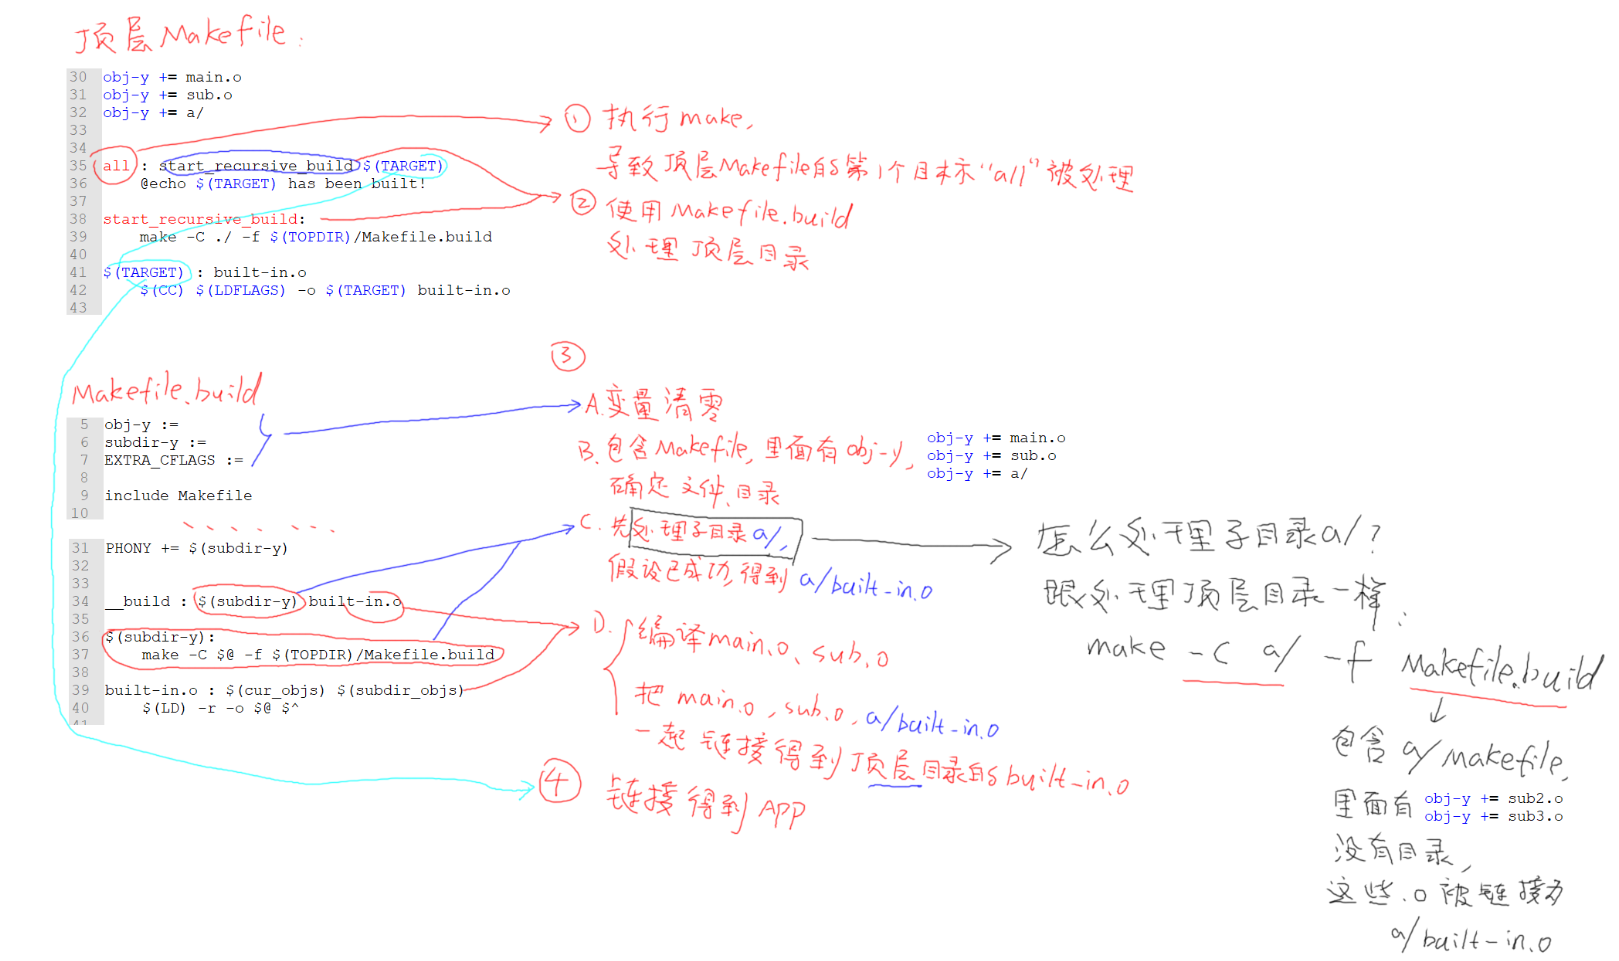 顶层Makefile:
30 obj-y += main.o
31 obj-y += sub.o
32 obj-y += a/
33
34
35 all : start_recursive_build $(TARGET)
36 @echo $(TARGET) has been built!
37
38 start_recursive_build:
39 make -C ./ -f $(TOPDIR)/Makefile.build
40
41 $(TARGET) : built-in.o
42 $(CC) $(LDFLAGS) -o $(TARGET) built-in.o
43
① 执行make,
导致顶层Makefile的第1个目标"all"被处理
② 使用Makefile.build
处理顶层目录
Makefile.build
5 obj-y :=
6 subdir-y :=
7 EXTRA_CFLAGS :=
8
9 include Makefile
10
31 PHONY += $(subdir-y)
32
33
34 __build : $(subdir-y) built-in.o
35
36 $(subdir-y):
37 make -C $@ -f $(TOPDIR)/Makefile.build
38
39 built-in.o : $(cur_objs) $(subdir_objs)
40 $(LD) -r -o $@ $^
41
③
A.变量清零
B.包含Makefile,里面有obj-y,
确定文件、目录
obj-y += main.o
obj-y += sub.o
obj-y += a/
C.先处理子目录a/,
假设已成功,得到 a/built-in.o
D.编译main.o、sub.o
把main.o,sub.o,a/built-in.o
一起链接得到顶层目录的built-in.o
④ 链接得到APP
怎么处理子目录a/?
跟处理顶层目录一样:
make -C a/ -f Makefile.build
包含a/makefile,
里面有 obj-y += sub2.o
obj-y += sub3.o
没有目录,
这些.o被链接为
a/built-in.o